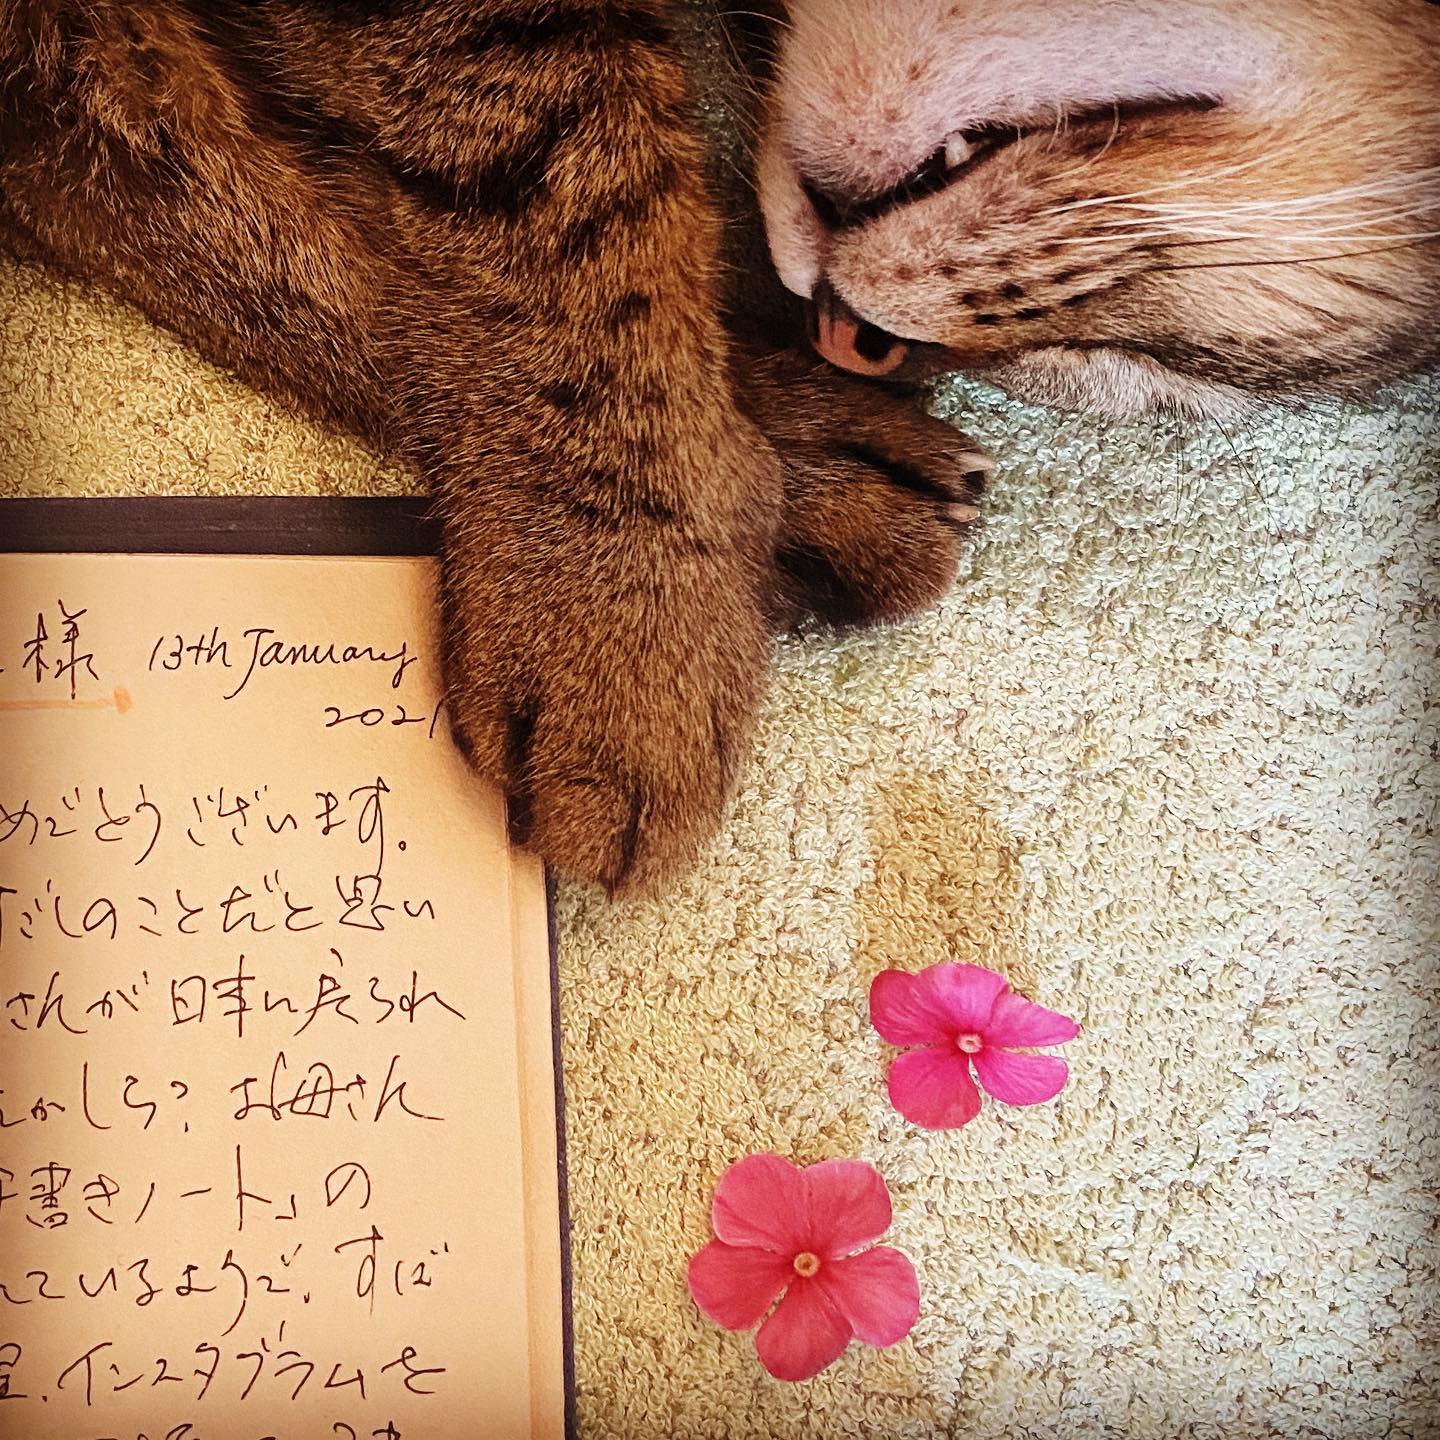 様 13th January
2021
めでとうございます。
ごしのことだと思い
さんが日本に戻られ
かしら? お母さん
書きノート」の
ているようで、すば
インスタグラムを